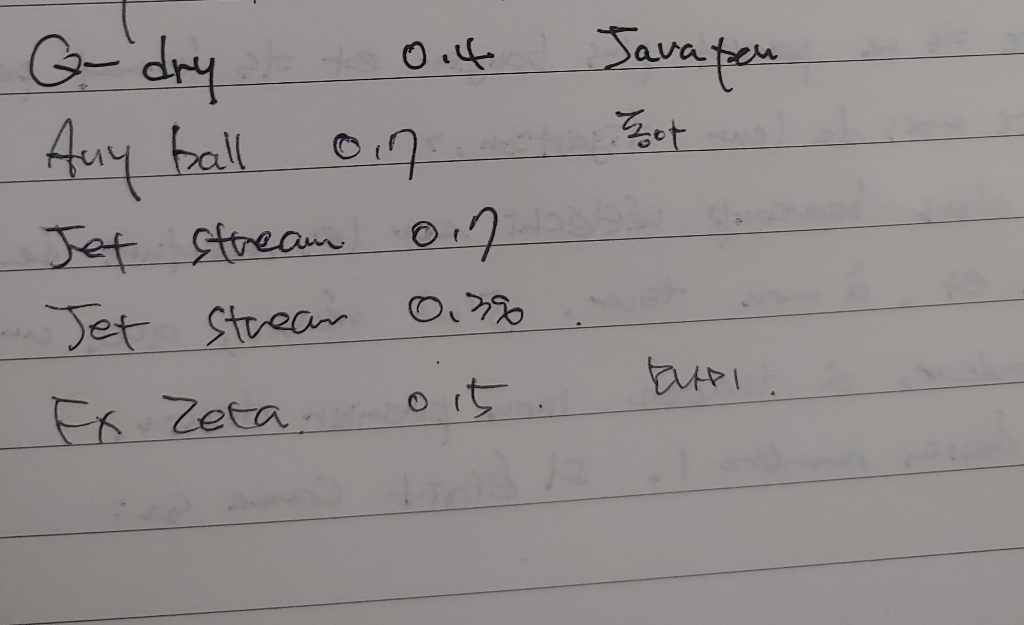 G-dry 0.4 Javapen
Any ball 0.7 동아
Jet stream 0.7
Jet stream 0.38.
FX Zeta. 0.5.